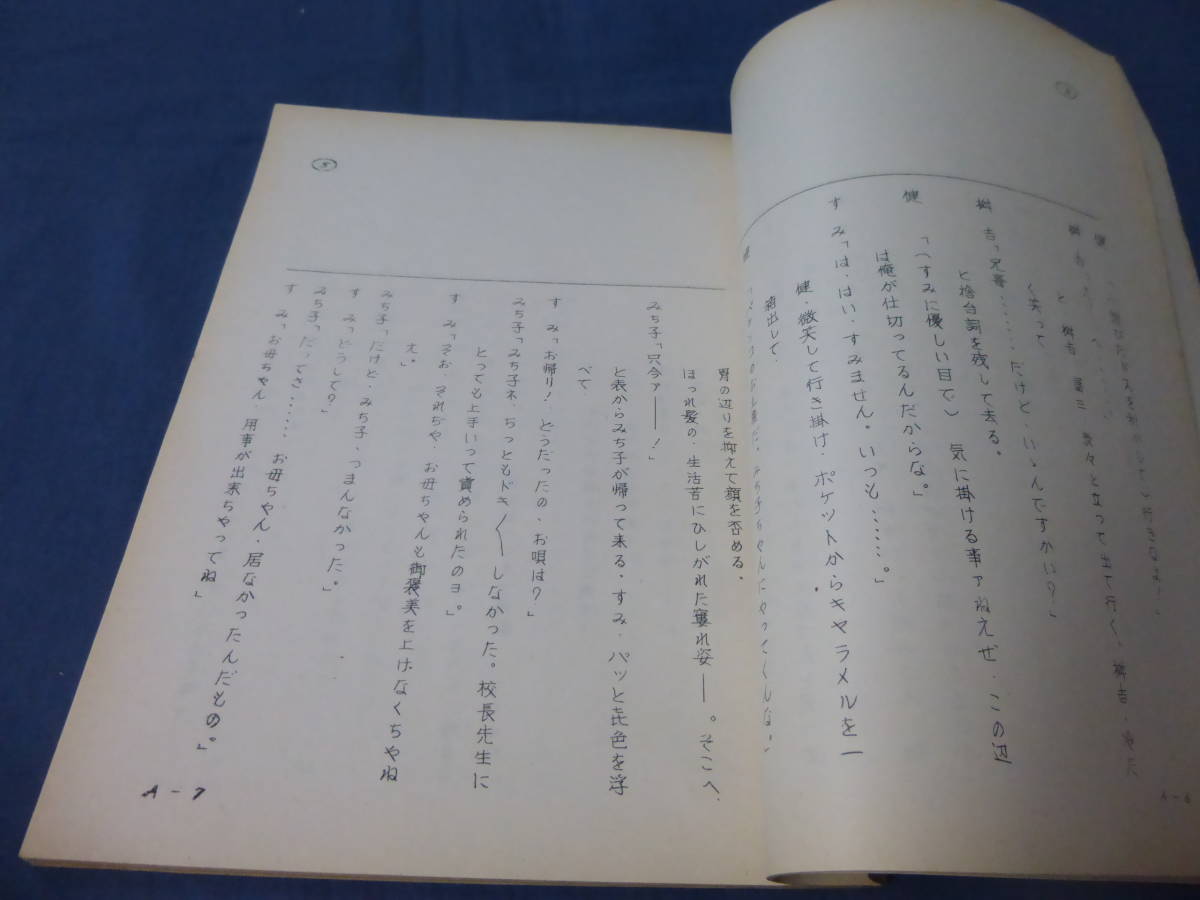 く笑って
桝吉「兄哥……だけど、いゝんですかい？」
と捨台詞を残して去る。
健「（すみに優しい目で）気に掛ける事ァねえぜ、この辺
は俺が仕切ってるんだからな。」
すみ「は、はい、すみません。いつも……。」
健、微笑して行き掛け、ポケットからキャラメルを一
箱出して、
A-6
⑤
胃の辺りを抑えて顔を歪める。
ほつれ髪の、生活苦にひしがれた窶れ姿――。そこへ、
みち子「只今ァ――！」
と表からみち子が帰って来る。すみ、パッと㐂色を浮
べて
すみ「お帰り！、どうだったの、お唄は？」
みち子「みち子ネ、ちっともドキ〳〵しなかった。校長先生に
とっても上手いって賞められたのヨ。」
すみ「そお、それぢや、お母ちゃんも御褒美を上げなくちゃね
え。」
みち子「だけど、みち子、つまんなかった。」
すみ「どうして？」
みち子「だってさ……お母ちゃん、居なかったんだもの。」
すみ「お母ちゃん、用事が出来ちゃってね」
A-7